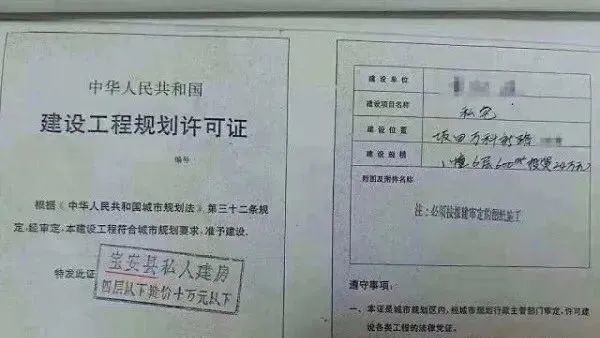 中华人民共和国
建设工程规划许可证
编号
根据《中华人民共和国城市规划法》第三十二条规
定,经审定,本建设工程符合城市规划要求,准予建设。
特发此证
宝安县私人建房
四层以下造价十万元以下
建设单位
建设项目名称
私宅
建设位置
坂田万科新路
建设规模
1幢6层600m² 投资24万元
附图及附件名称
注:必须按报建审定的图纸施工
遵守事项:
一、本证是城市规划区内,经城市规划行政主管部门审定,许可建
设各类工程的法律凭证。